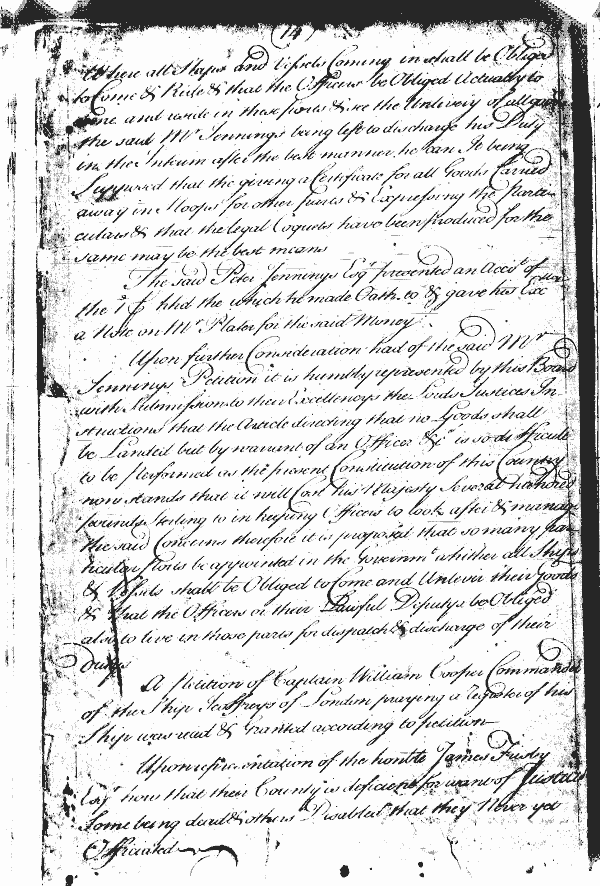 (14)
Where all Ships and Vessels Coming in shall be Obliged
to Come & Ride & that the Officers be Obliged Actually to
and reside in those ports & see the Unlivery of all
the said Mr Jennings being left to discharge his Duty
in the Interim after the best manner he can It being
Supposed that the giving a Certificate for all Goods Carried
away in Sloops for other ports & Expressing the parti
culars & that the legal Coquets have been produced for the
same may be the best means
The said Peter Jennings Esqr presented an Acct of
the hhd the which he made Oath to & gave his Exc
a Note on Mr Plater for the said Money
Upon further Consideration had of the said Mr
Jennings Petition it is humbly represented by this Board
with Submission to their Excellencys the Lords Justices In
structions that the Article directing that no Goods shall
be Landed but by warrant of an Officer &c is so difficult
to be performed as the present Constitution of this Country
now stands that it will Cost his Majesty Several hundred
pounds Sterling in keeping Officers to look after & manage
the said Concerns therefore it is proposed that so many par
ticular ports be appointed in the Governmt whither all Ships
& Vessels shall be Obliged to Come and Unliver their Goods
& that the Officers or their Lawful Deputys be Obliged
also to live in those parts for dispatch & discharge of their
Dutys
A Petition of Captain William Cooper Commander
of the Ship Jeffreys of London praying a register of his
Ship was read & Granted according to petition
Upon representation of the honble James
Esqr how that their County is deficient for want of Justices
Some being dead & others Disabled that they Never yet
Officiated